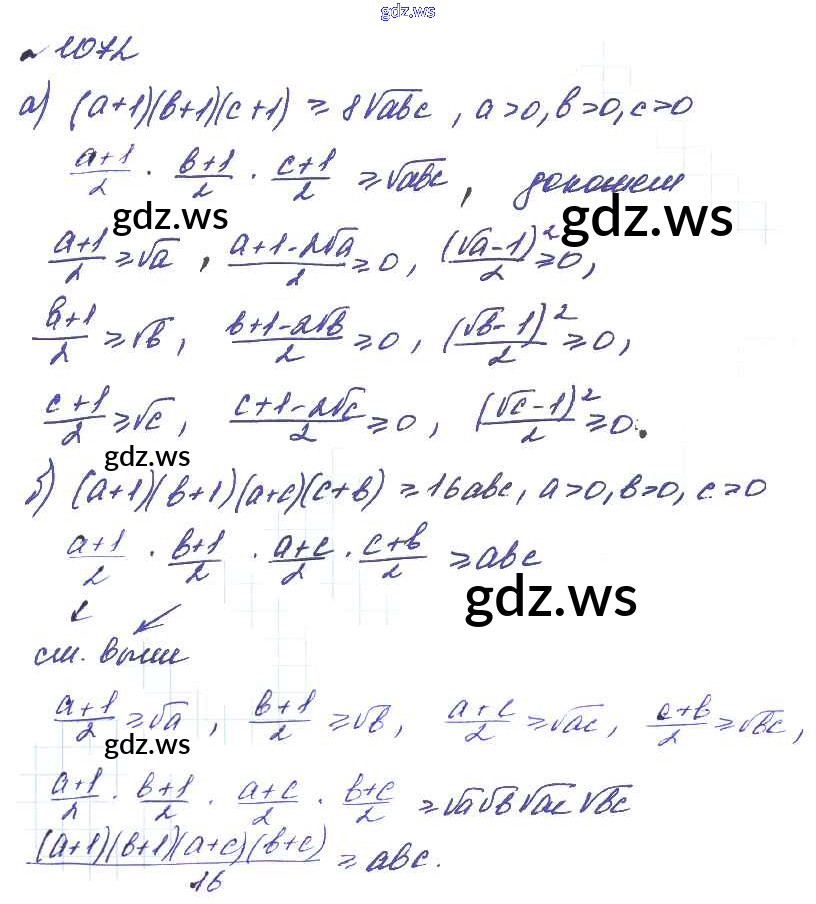 gdz.ws
№ 1072
а) (a+1)(b+1)(c+1) ≥ 8√abc, a>0, b>0, c>0
(a+1)/2 · (b+1)/2 · (c+1)/2 ≥ √abc, докажем
gdz.ws gdz.ws
(a+1)/2 ≥ √a, (a+1-2√a)/2 ≥ 0, (√a-1)²/2 ≥ 0,
(b+1)/2 ≥ √b, (b+1-2√b)/2 ≥ 0, (√b-1)²/2 ≥ 0,
(c+1)/2 ≥ √c, (c+1-2√c)/2 ≥ 0, (√c-1)²/2 ≥ 0.
gdz.ws
б) (a+1)(b+1)(a+c)(c+b) ≥ 16abc, a>0, b>0, c>0
(a+1)/2 · (b+1)/2 · (a+c)/2 · (c+b)/2 ≥ abc
gdz.ws
см. выше
(a+1)/2 ≥ √a, (b+1)/2 ≥ √b, (a+c)/2 ≥ √ac, (c+b)/2 ≥ √bc,
gdz.ws
(a+1)/2 · (b+1)/2 · (a+c)/2 · (b+c)/2 ≥ √a√b√ac√bc
(a+1)(b+1)(a+c)(b+c)/16 ≥ abc.